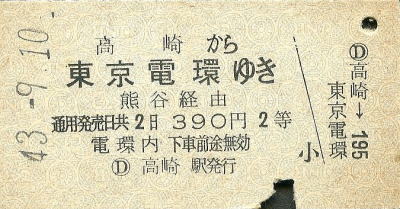 43.-9.10.
高崎から
東京電環ゆき
熊谷経由
通用発売日共2日 390円 2等
電環内下車前途無効
Ⓓ 高崎駅発行
小
Ⓓ 高崎→195
東京電環